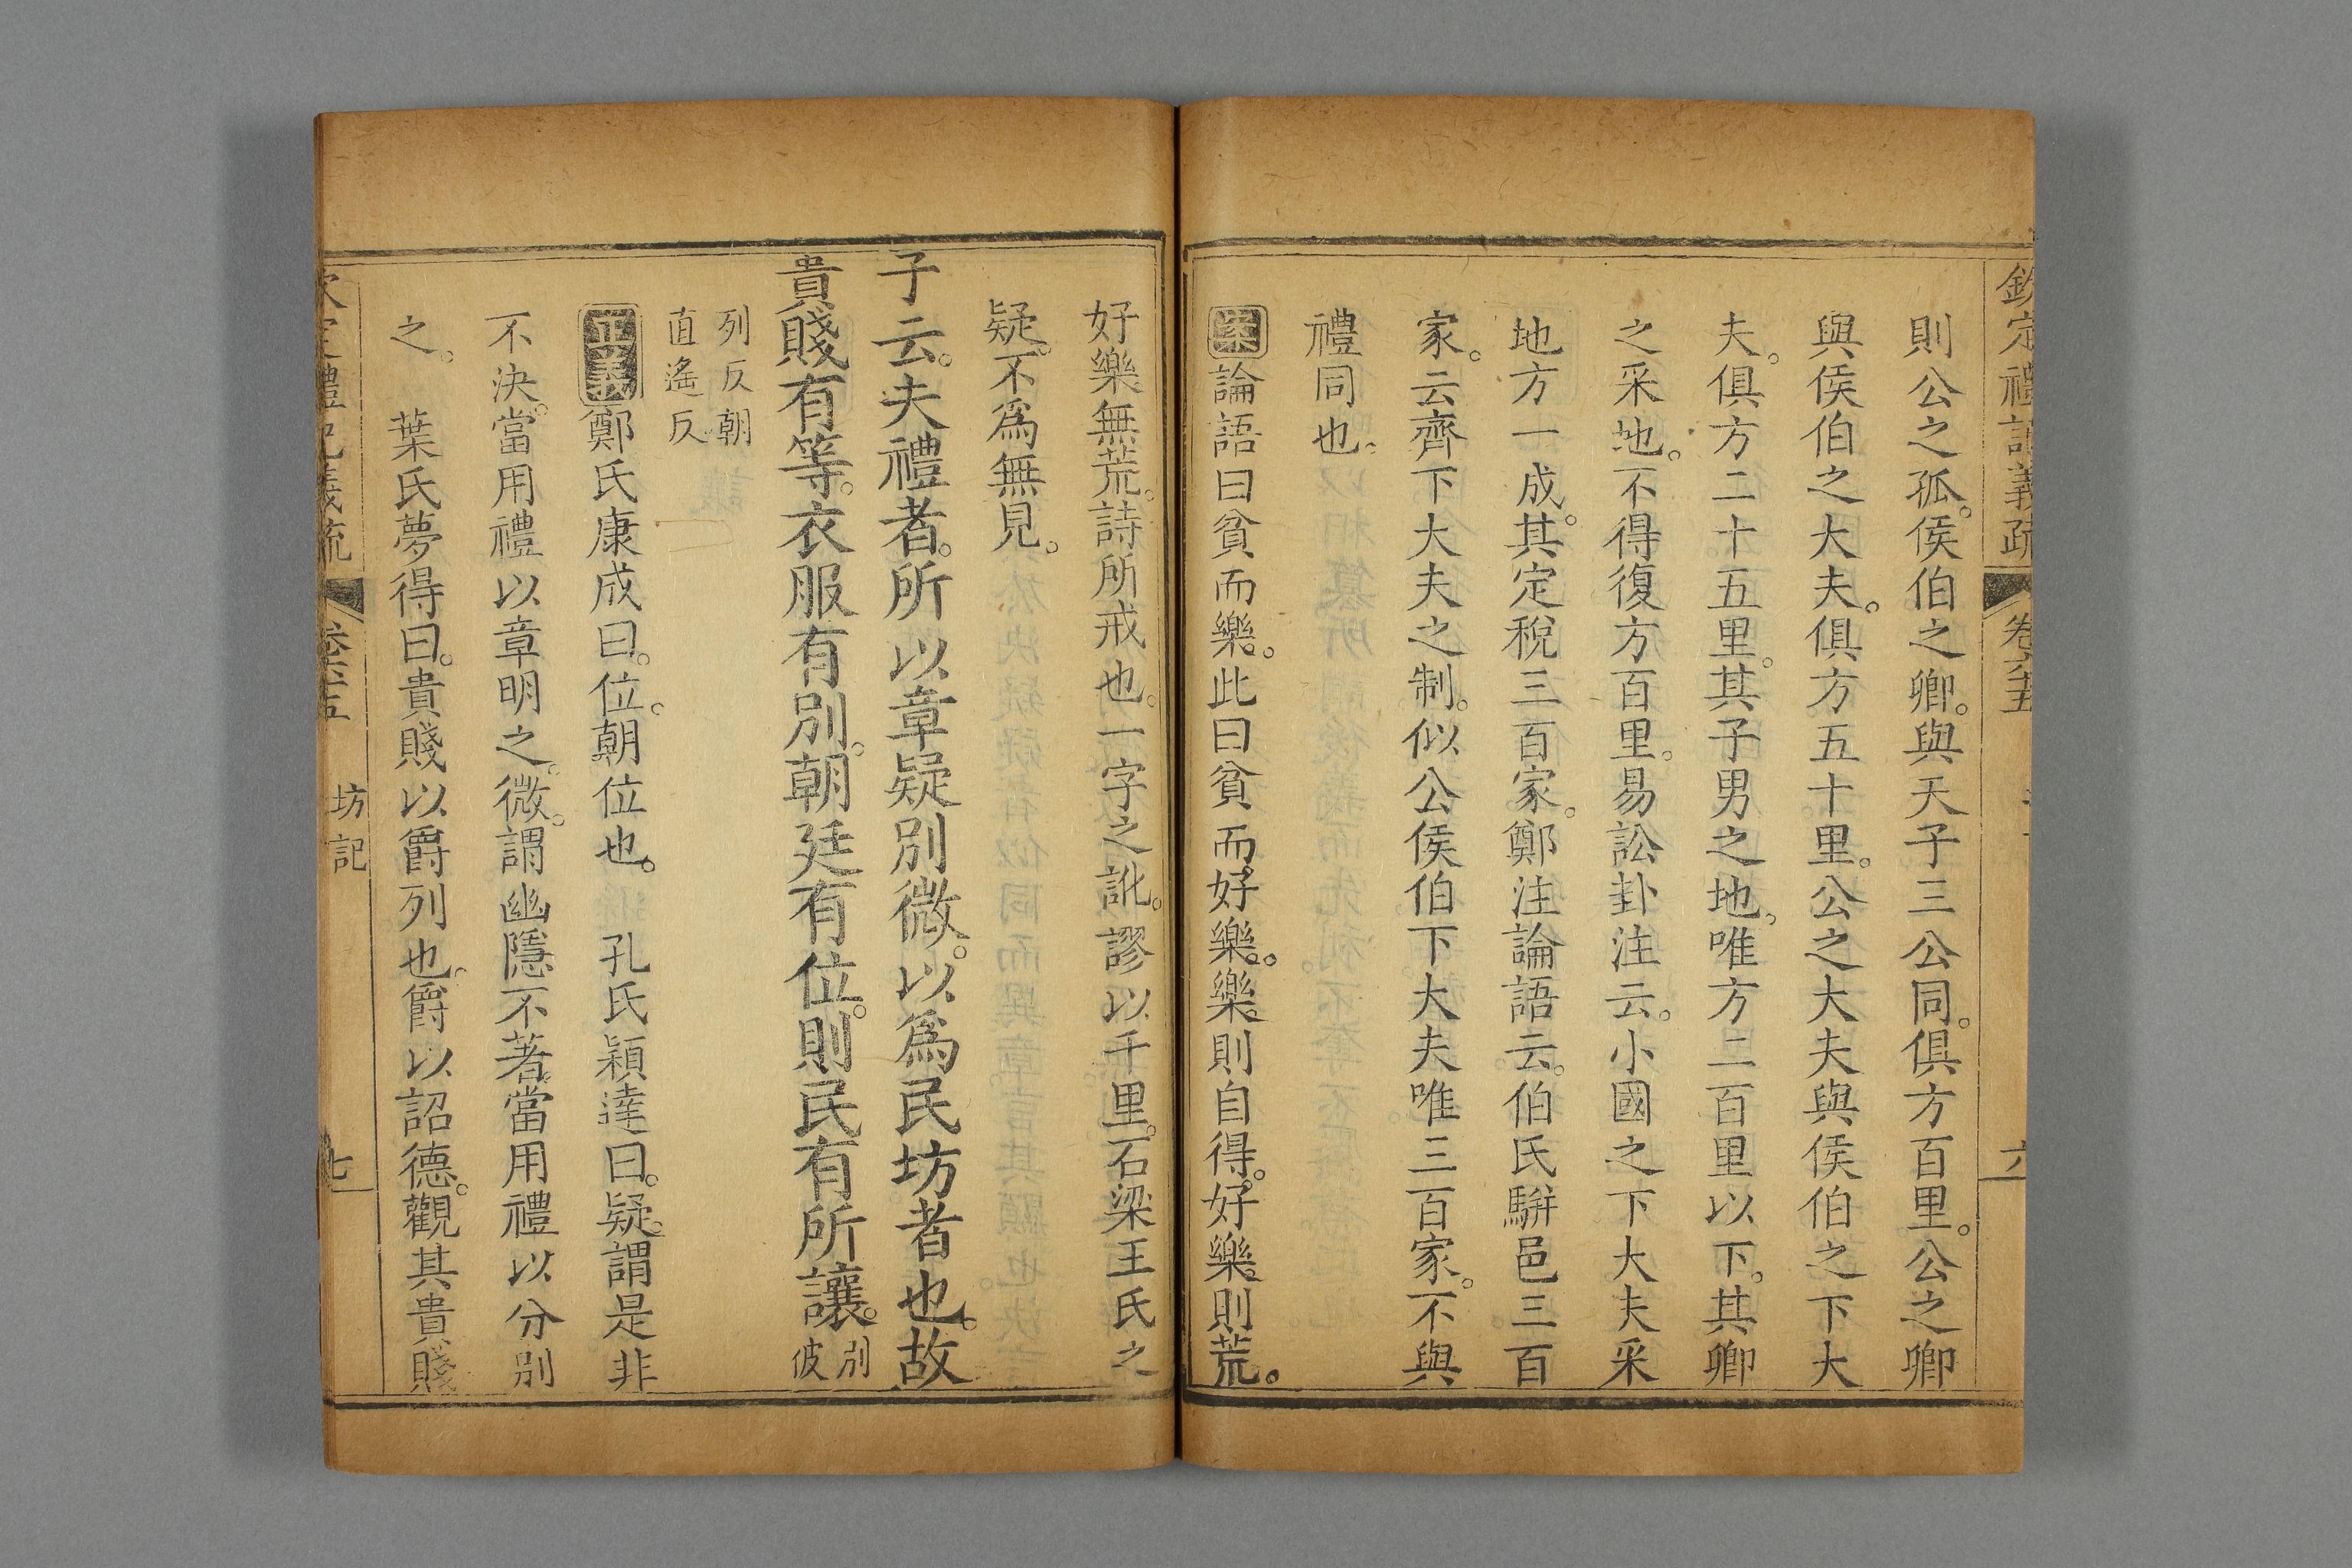 欽定禮記義疏 卷六十五 六
則公之孤。侯伯之卿。與天子三公同。俱方百里。公之卿
與侯伯之大夫。俱方五十里。公之大夫與侯伯之下大
夫。俱方二十五里。其子男之地。唯方二百里以下。其卿
之采地。不得復方百里。易訟卦注云。小國之下大夫采
地方一成。其定稅三百家。鄭注論語云。伯氏駢邑三百
家。云齊下大夫之制。似公侯伯下大夫唯三百家。不與
禮同也。
案論語曰貧而樂。此曰貧而好樂。樂則自得。好樂則荒。
好樂無荒。詩所戒也。一字之訛。謬以千里。石梁王氏之
疑。不爲無見。
子云。夫禮者。所以章疑別微。以爲民坊者也。故
貴賤有等。衣服有別。朝廷有位。則民有所讓。別彼
列反朝
直遙反
正義鄭氏康成曰。位。朝位也。 孔氏穎達曰。疑。謂是非
不決。當用禮以章明之。微。謂幽隱不著。當用禮以分別
之。 葉氏夢得曰。貴賤以爵列也。爵以詔德。觀其貴賤
欽定禮記義疏 卷六十五 坊記 七